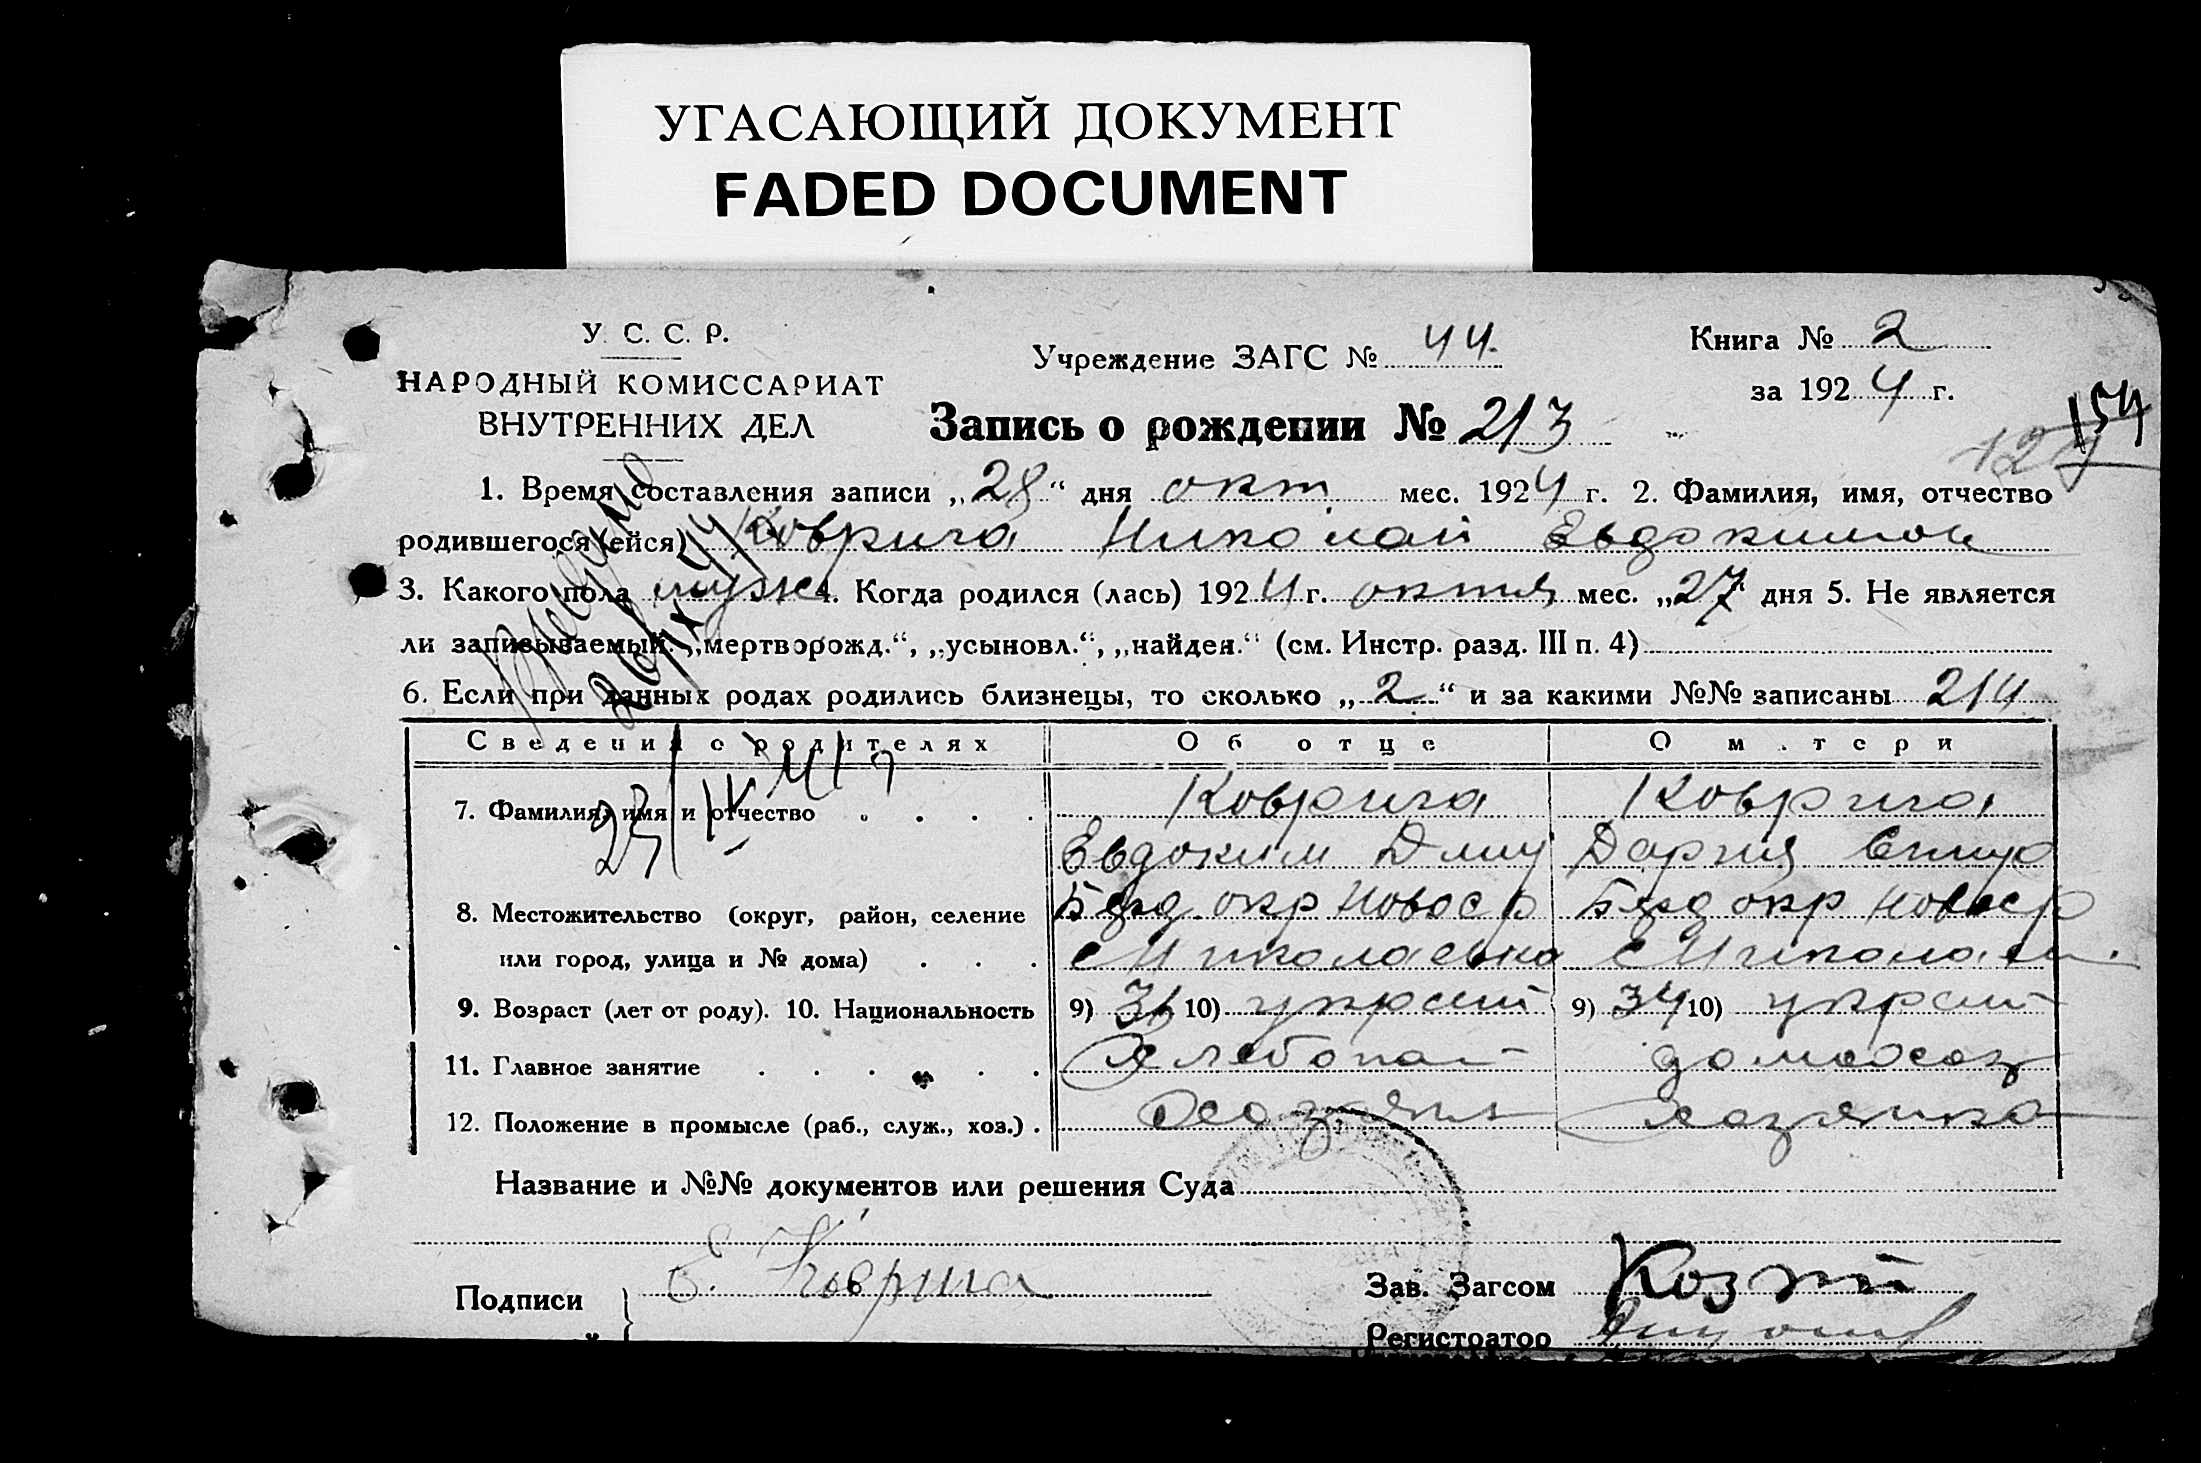 УГАСАЮЩИЙ ДОКУМЕНТ
FADED DOCUMENT
У. С. С. Р.
НАРОДНЫЙ КОМИССАРИАТ
ВНУТРЕННИХ ДЕЛ
Учреждение ЗАГС № 44
Книга № 2
за 1924 г.
154
Запись о рождении № 213
1. Время составления записи „28“ дня окт мес. 1924 г. 2. Фамилия, имя, отчество
родившегося (ейся) Коврига Николай Евдокимов
3. Какого пола муж 4. Когда родился (лась) 1924 г. октяб мес. „27“ дня 5. Не является
ли записываемый: „мертворожд.“, „усыновл.“, „найден.“ (см. Инстр. разд. III п. 4)
6. Если при данных родах родились близнецы, то сколько „2“ и за какими №№ записаны 214
Сведения о родителях Об отце О матери
7. Фамилия, имя и отчество Коврига Коврига
Евдоким Дмит Дария
8. Местожительство (округ, район, селение Берд окр Новоср Берд окр Новоср
или город, улица и № дома) с Миколаевка с Миколаев
9. Возраст (лет от роду). 10. Национальность 9) 36 10) украин 9) 34 10) украин
11. Главное занятие Хлебопаш домохоз
12. Положение в промысле (раб., служ., хоз.) Хозяин хозяйка
Название и №№ документов или решения Суда
Подписи Е. Коврига Зав. Загсом
Регистратор